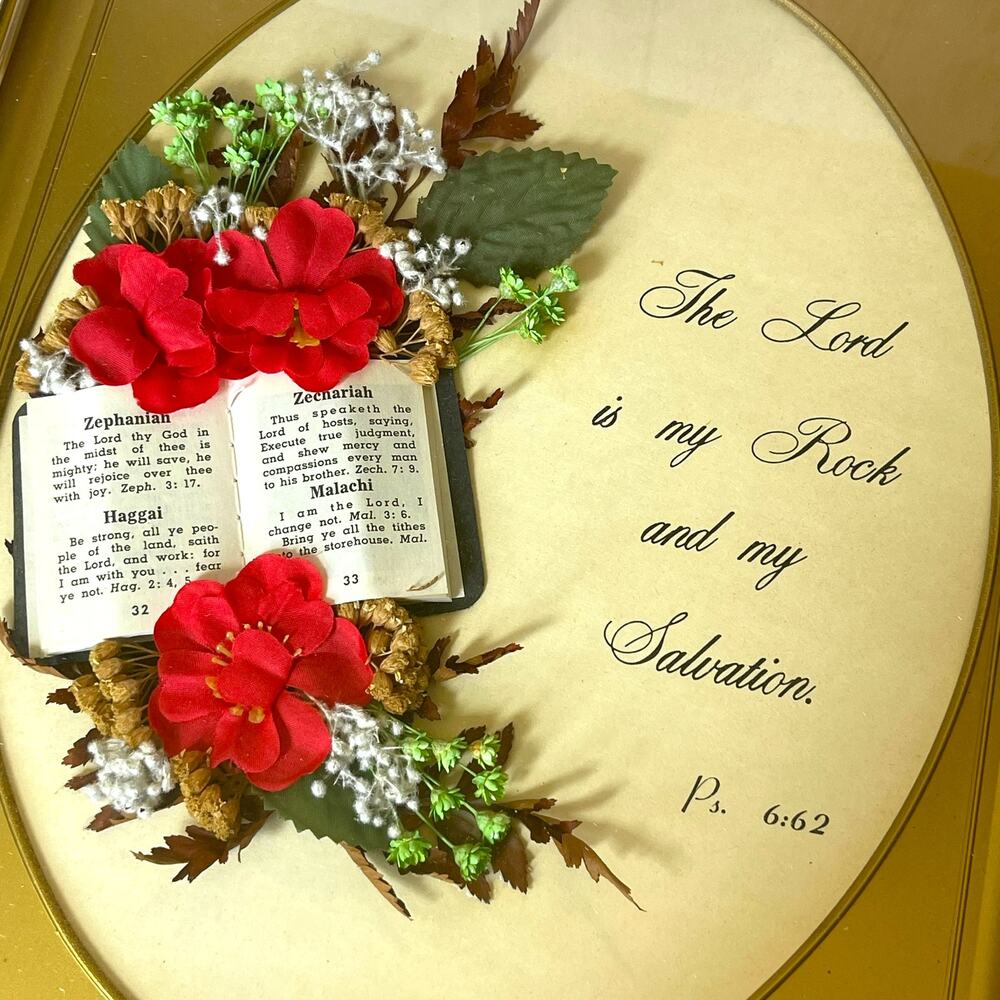 Zephaniah
The Lord thy God in
the midst of thee is
mighty; he will save, he
will rejoice over thee
with joy. Zeph. 3: 17.
Haggai
Be strong, all ye peo-
ple of the land, saith
the Lord, and work: for
I am with you . . . fear
ye not. Hag. 2: 4, 5
32
Zechariah
Thus speaketh the
Lord of hosts, saying,
Execute true judgment,
and shew mercy and
compassions every man
to his brother. Zech. 7: 9.
Malachi
I am the Lord, I
change not. Mal. 3: 6.
Bring ye all the tithes
into the storehouse. Mal.
33
The Lord
is my Rock
and my
Salvation.
Ps. 6:62